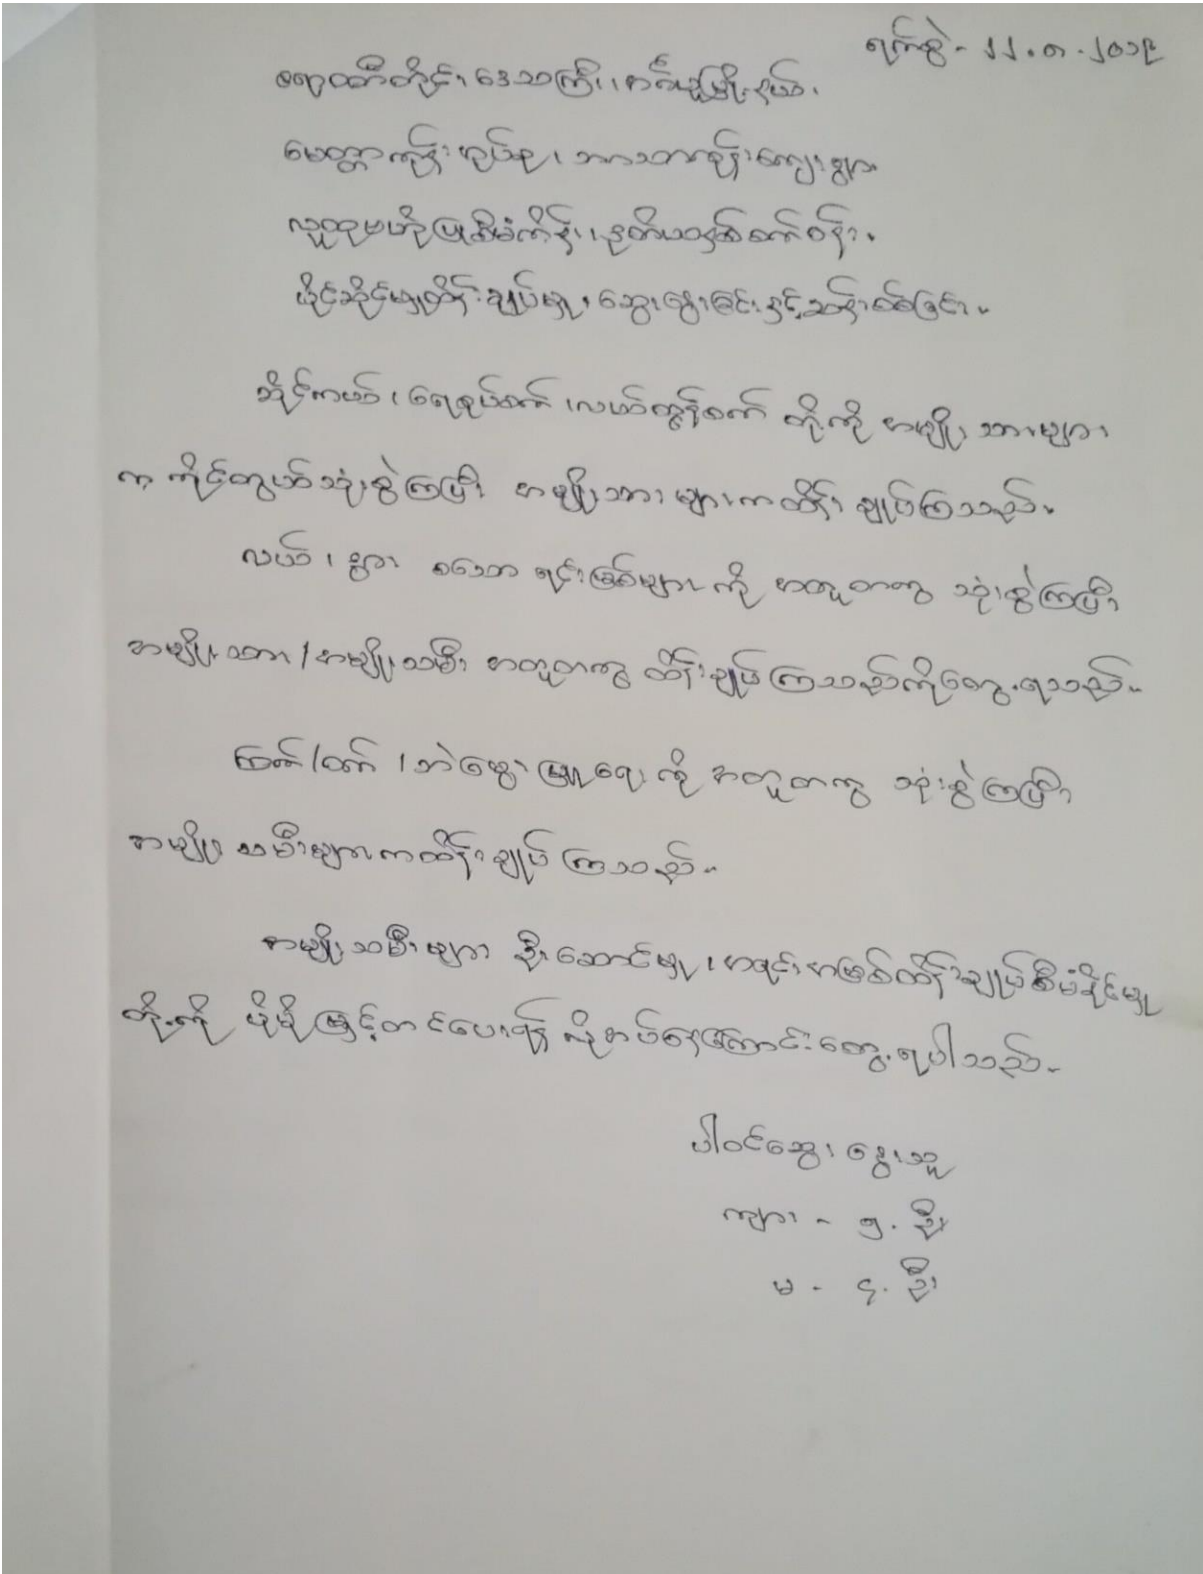 ရက်စွဲ - ၂၂.၈.၂၀၁၉
ဧရာဝတီတိုင်း ဒေသကြီး၊ ။
မေတ္တာကုန်း အုပ်စု၊ ကျေးရွာ
လူထုဗဟိုပြုစီမံကိန်း၊ ဒုတိယနှစ်စက်ဝန်း၊
ပိုင်ဆိုင်မှုထိန်းချုပ်မှု၊ ဆွေးနွေးခြင်းနှင့်ဆန်းစစ်ခြင်း။
ဆိုင်ကယ်၊ ရေစုပ်စက်၊ လယ်ထွန်စက် တို့ကို အမျိုးသားများ
က ကိုင်တွယ်သုံးစွဲကြပြီး အမျိုးသားများကထိန်းချုပ်ကြသည်။
လယ်၊ နွား စသော ရင်းမြစ်များကို အတူတကွ သုံးစွဲကြပြီး
အမျိုးသား/အမျိုးသမီး အတူတကွ ထိန်းချုပ်ကြသည်ကိုတွေ့ရသည်။
ကြက်/ဝက်/ဘဲမွေးမြူရေးကို အတူတကွ သုံးစွဲကြပြီး
အမျိုးသမီးများကထိန်းချုပ်ကြသည်။
အမျိုးသမီးများ ဦးဆောင်မှု၊ အရင်းအမြစ်ထိန်းချုပ်စီမံနိုင်မှု
တို့ကို ပိုမိုမြှင့်တင်ပေးရန် လိုအပ်နေကြောင်းတွေ့ရပါသည်။
ပါဝင်ဆွေးနွေးသူ
ကျား - ၅.ဦး
မ - ၄.ဦး